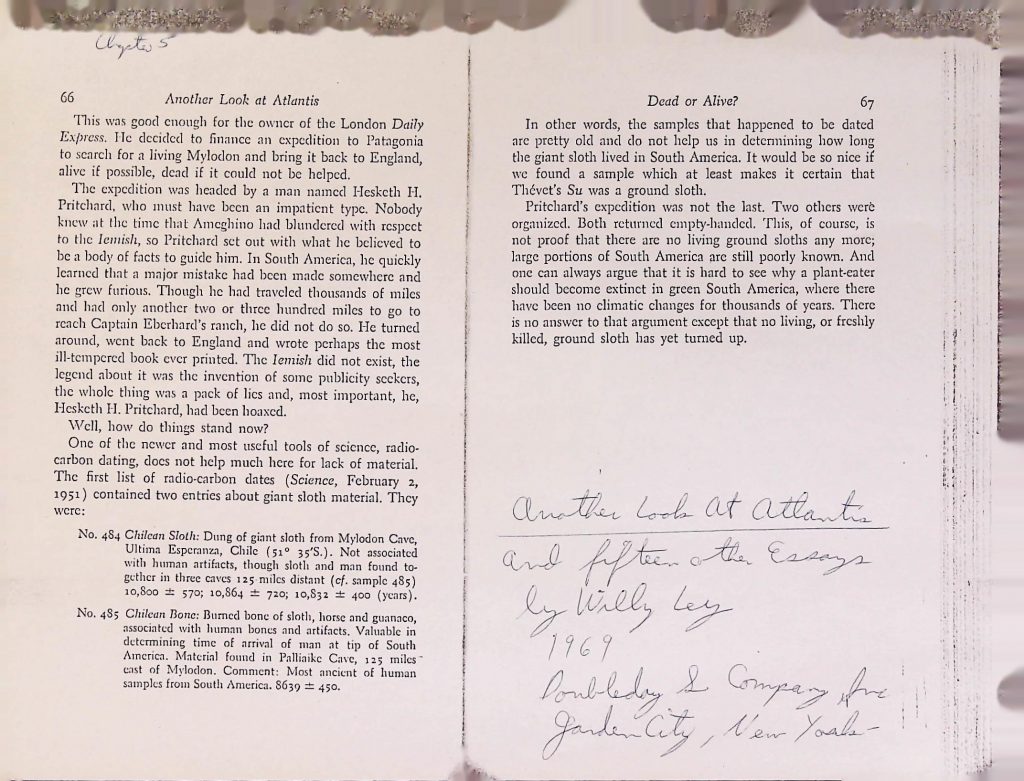 Chapter 5
66 Another Look at Atlantis
This was good enough for the owner of the London Daily
Express. He decided to finance an expedition to Patagonia
to search for a living Mylodon and bring it back to England,
alive if possible, dead if it could not be helped.
The expedition was headed by a man named Hesketh H.
Pritchard, who must have been an impatient type. Nobody
knew at the time that Ameghino had blundered with respect
to the Iemish, so Pritchard set out with what he believed to
be a body of facts to guide him. In South America, he quickly
learned that a major mistake had been made somewhere and
he grew furious. Though he had traveled thousands of miles
and had only another two or three hundred miles to go to
reach Captain Eberhard's ranch, he did not do so. He turned
around, went back to England and wrote perhaps the most
ill-tempered book ever printed. The Iemish did not exist, the
legend about it was the invention of some publicity seekers,
the whole thing was a pack of lies and, most important, he,
Hesketh H. Pritchard, had been hoaxed.
Well, how do things stand now?
One of the newer and most useful tools of science, radio-
carbon dating, does not help much here for lack of material.
The first list of radio-carbon dates (Science, February 2,
1951) contained two entries about giant sloth material. They
were:
No. 484 Chilean Sloth: Dung of giant sloth from Mylodon Cave,
Ultima Esperanza, Chile (51° 35'S.). Not associated
with human artifacts, though sloth and man found to-
gether in three caves 125 miles distant (cf. sample 485)
10,800 ± 570; 10,864 ± 720; 10,832 ± 400 (years).
No. 485 Chilean Bone: Burned bone of sloth, horse and guanaco,
associated with human bones and artifacts. Valuable in
determining time of arrival of man at tip of South
America. Material found in Palliaike Cave, 125 miles
east of Mylodon. Comment: Most ancient of human
samples from South America. 8639 ± 450.
Dead or Alive? 67
In other words, the samples that happened to be dated
are pretty old and do not help us in determining how long
the giant sloth lived in South America. It would be so nice if
we found a sample which at least makes it certain that
Thévet's Su was a ground sloth.
Pritchard's expedition was not the last. Two others were
organized. Both returned empty-handed. This, of course, is
not proof that there are no living ground sloths any more;
large portions of South America are still poorly known. And
one can always argue that it is hard to see why a plant-eater
should become extinct in green South America, where there
have been no climatic changes for thousands of years. There
is no answer to that argument except that no living, or freshly
killed, ground sloth has yet turned up.
Another Look At Atlantis
and fifteen other Essays
by Willy Ley
1969
Doubleday & Company, Inc
Garden City, New York